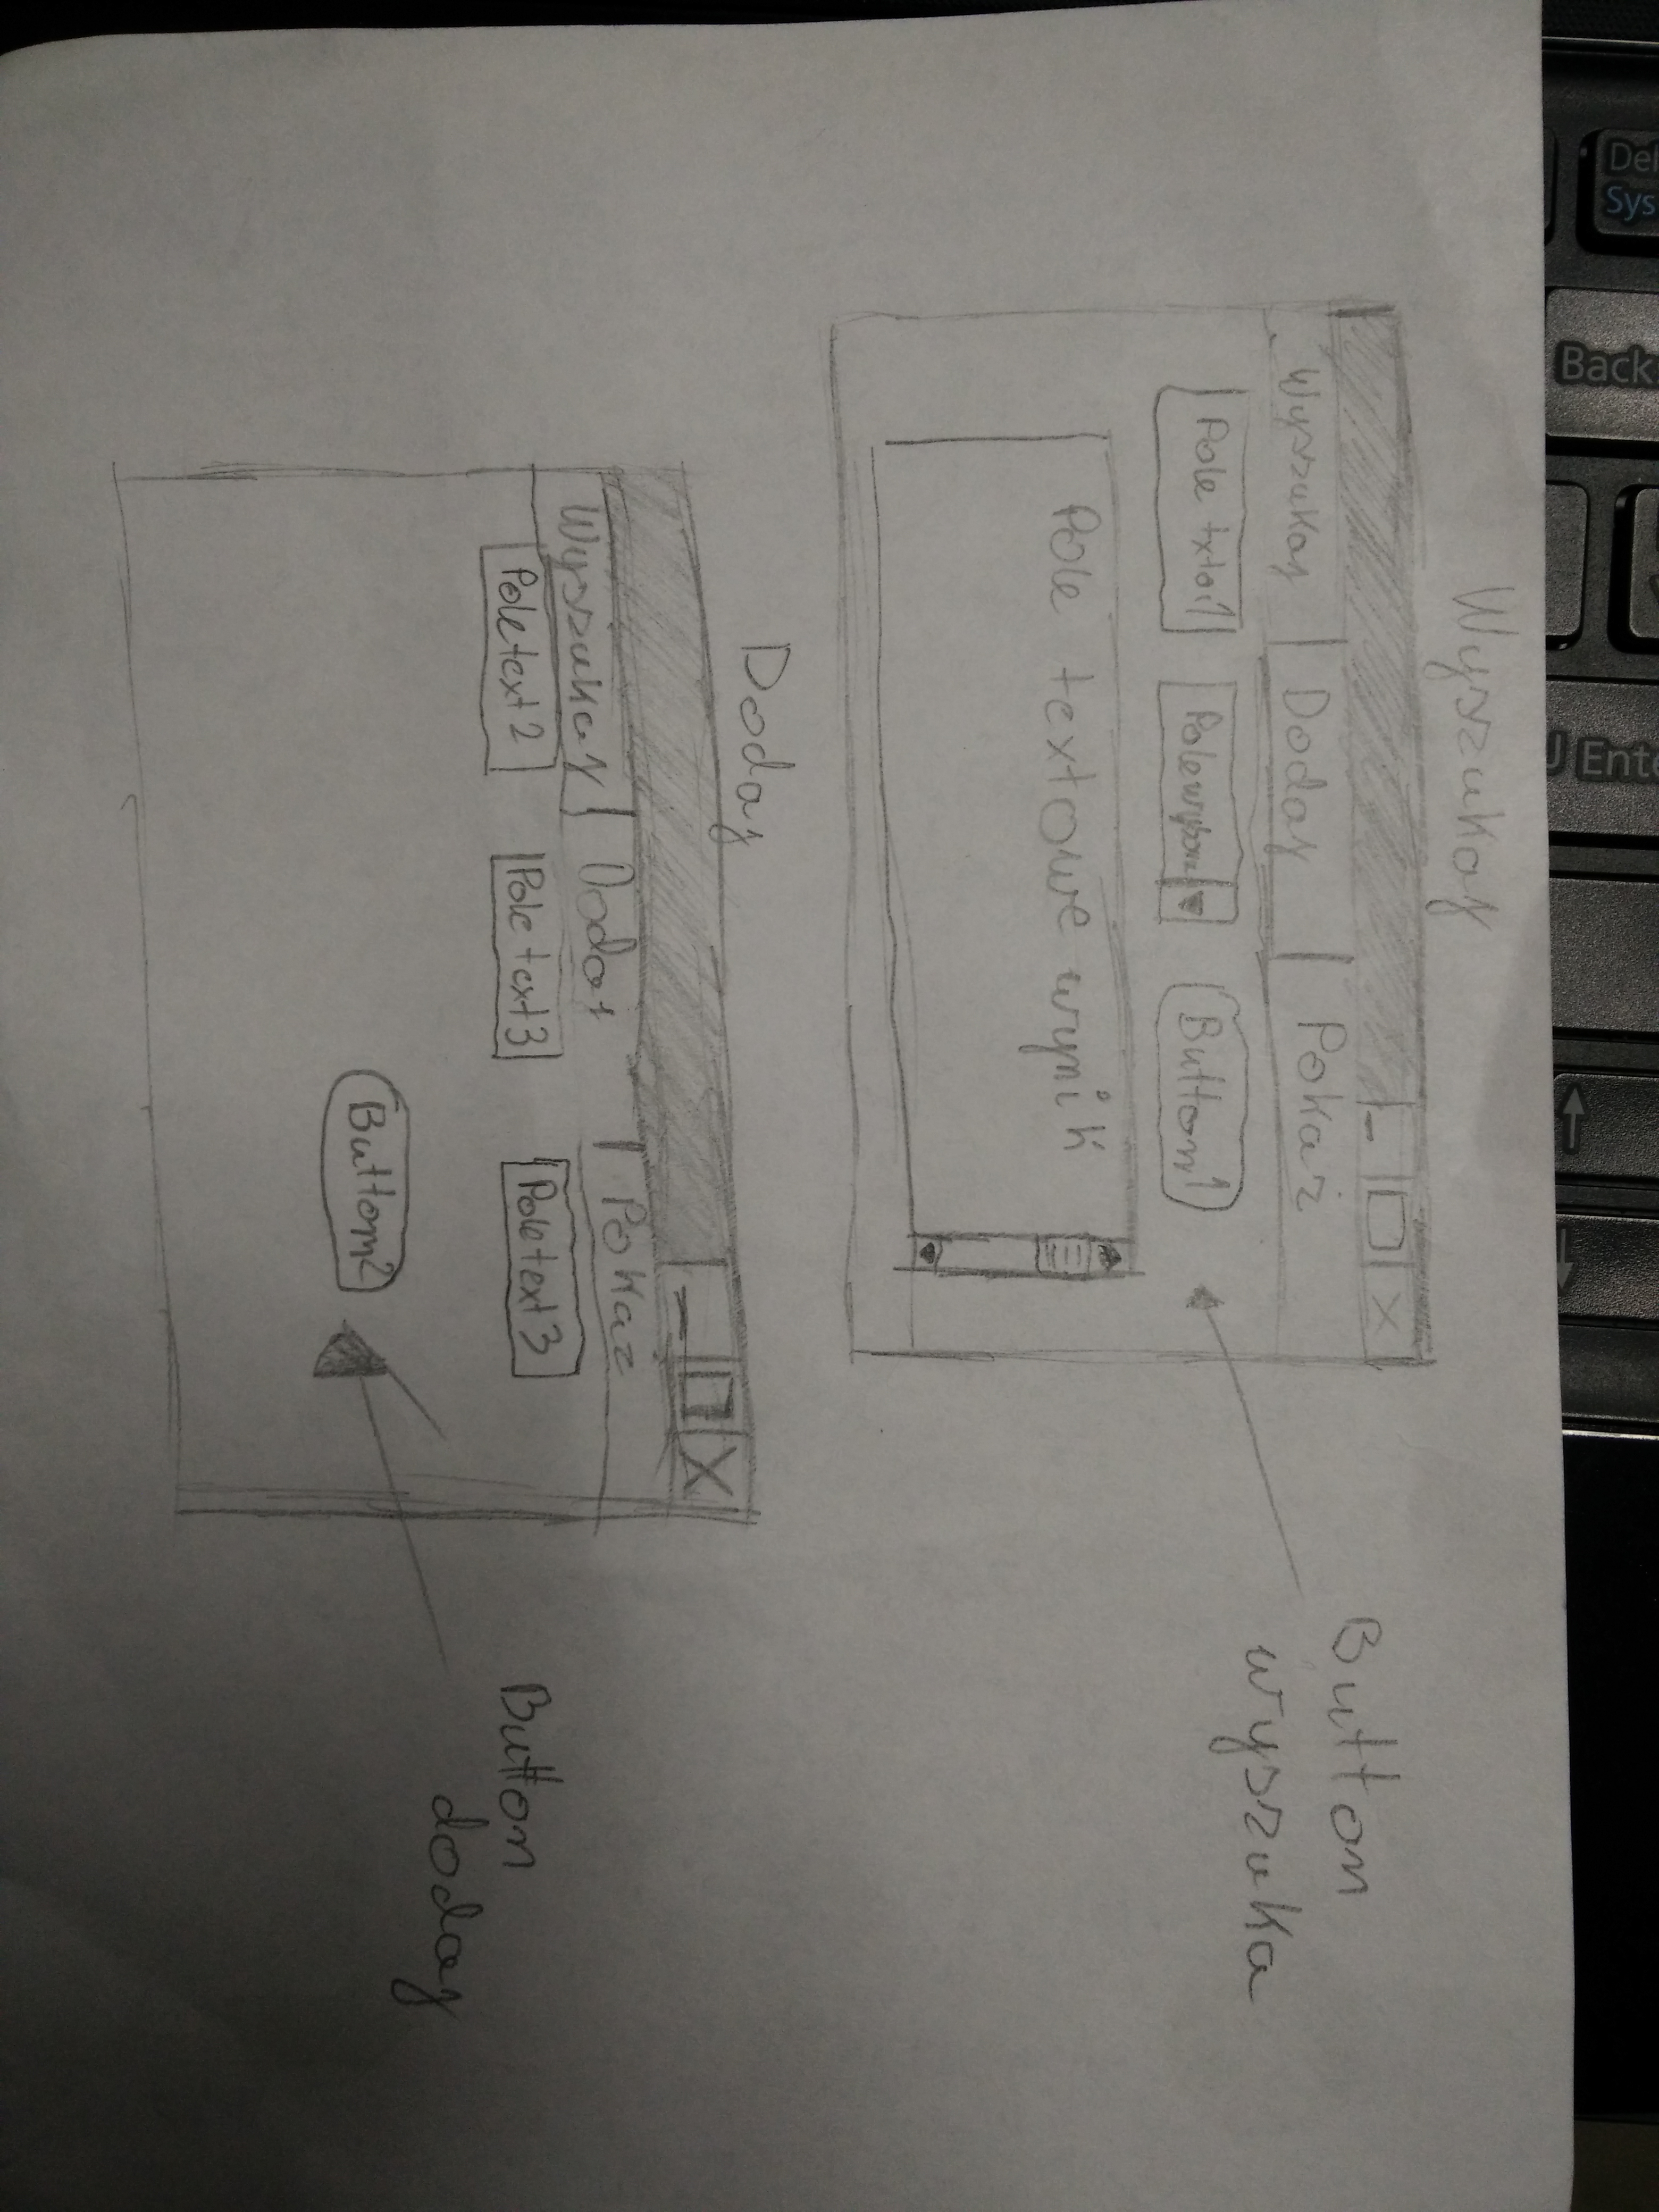 Wyszukaj
X
Wyszukaj Dodaj Pokaż
Pole txto1 Pole wyboru Button1
Pole textowe wynik
Button
wyszuka
Dodaj
X
Wyszukaj Dodaj Pokaz
Pole text2 Pole text3 Pole text3
Button2
Button
dodaj
Del
Sys
Back
Ente